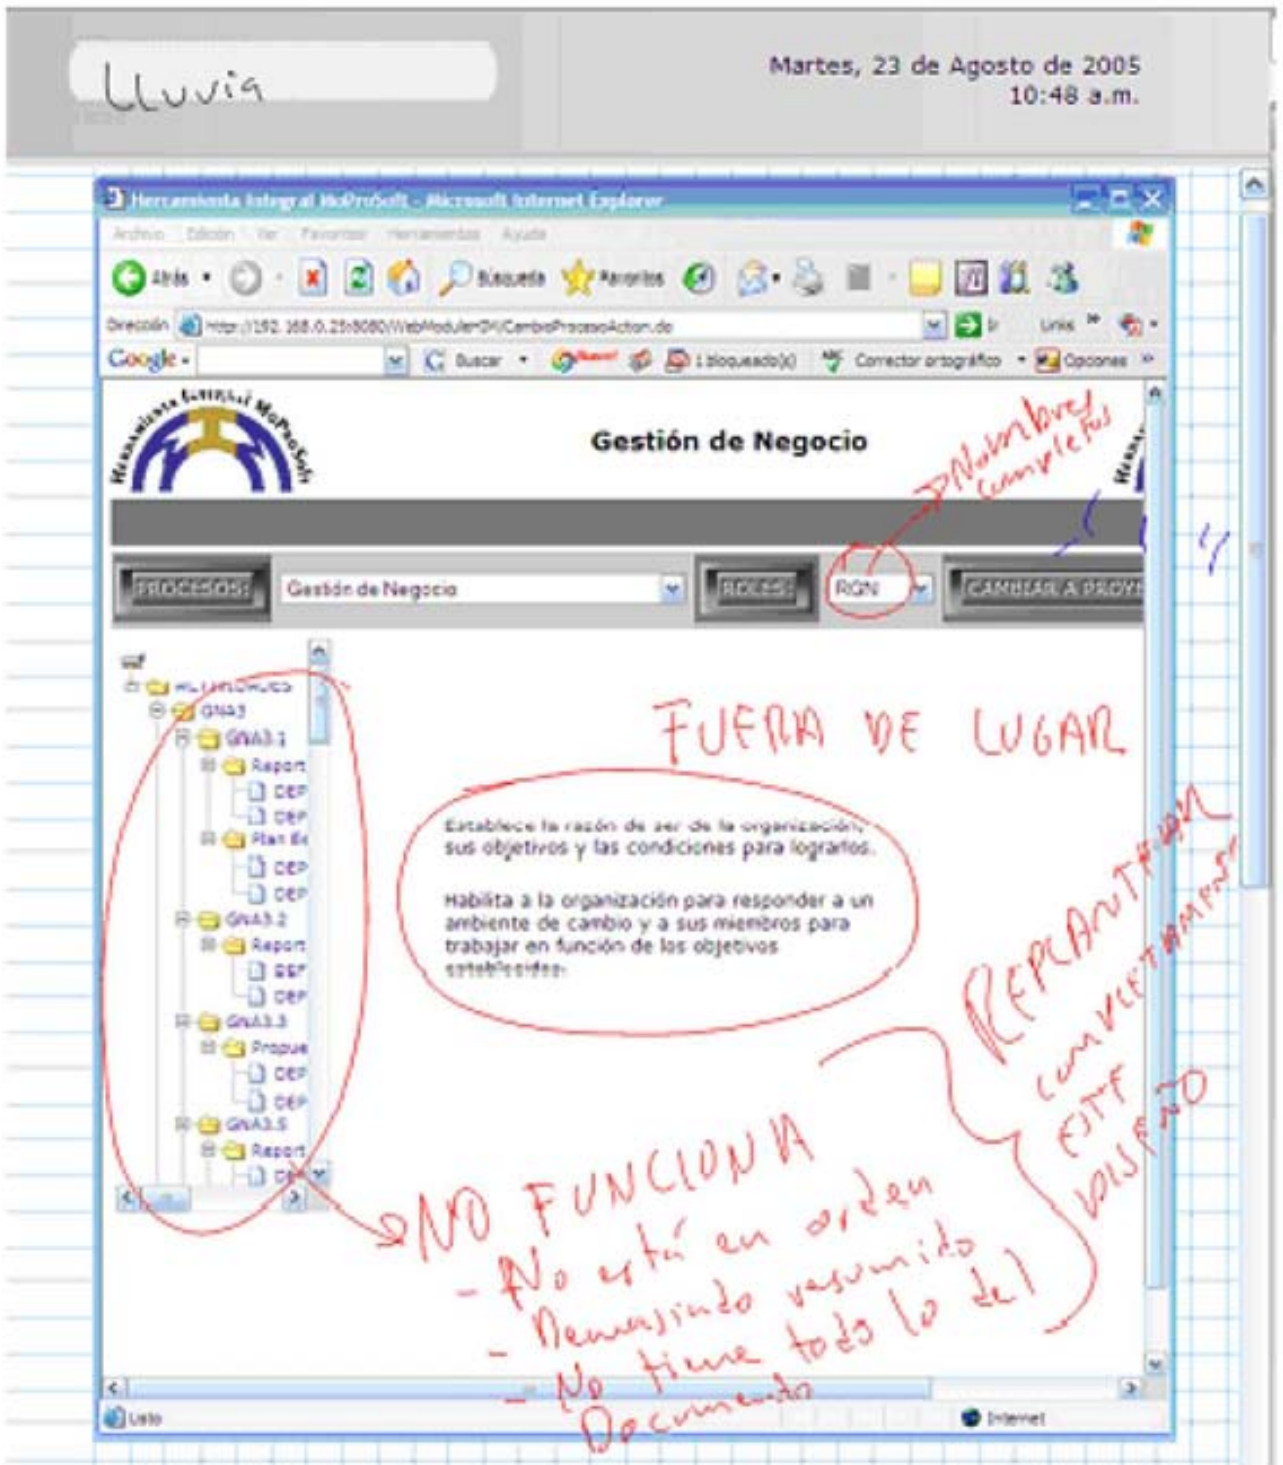 Lluvia
Martes, 23 de Agosto de 2005
10:48 a.m.
Herramienta Integral MoProSoft - Microsoft Internet Explorer
Archivo Edición Ver Favoritos Herramientas Ayuda
Atrás Búsqueda Favoritos
Dirección Ir Links
Google Buscar 1 bloqueado(s) Corrector ortográfico Opciones
Herramienta Integral MoProSoft
Gestión de Negocio
Nombres
completos
PROCESOS: Gestión de Negocio ROLES: RGN CAMBIAR A PROYE
ACTIVIDADES
GNA3
GNA3.1
Report
DEP
DEP
Plan Es
DEP
DEP
GNA3.2
Report
DEP
DEP
GNA3.3
Propue
DEP
DEP
GNA3.5
Report
FUERA DE LUGAR
Establece la razón de ser de la organización,
sus objetivos y las condiciones para lograrlos.
Habilita a la organización para responder a un
ambiente de cambio y a sus miembros para
trabajar en función de los objetivos
establecidos.
REPLANTEAR
COMPLETAMENTE
ESTE
DISEÑO
NO FUNCIONA
- No está en orden
- Demasiado resumido
- No tiene todo lo del
Documento
Listo Internet